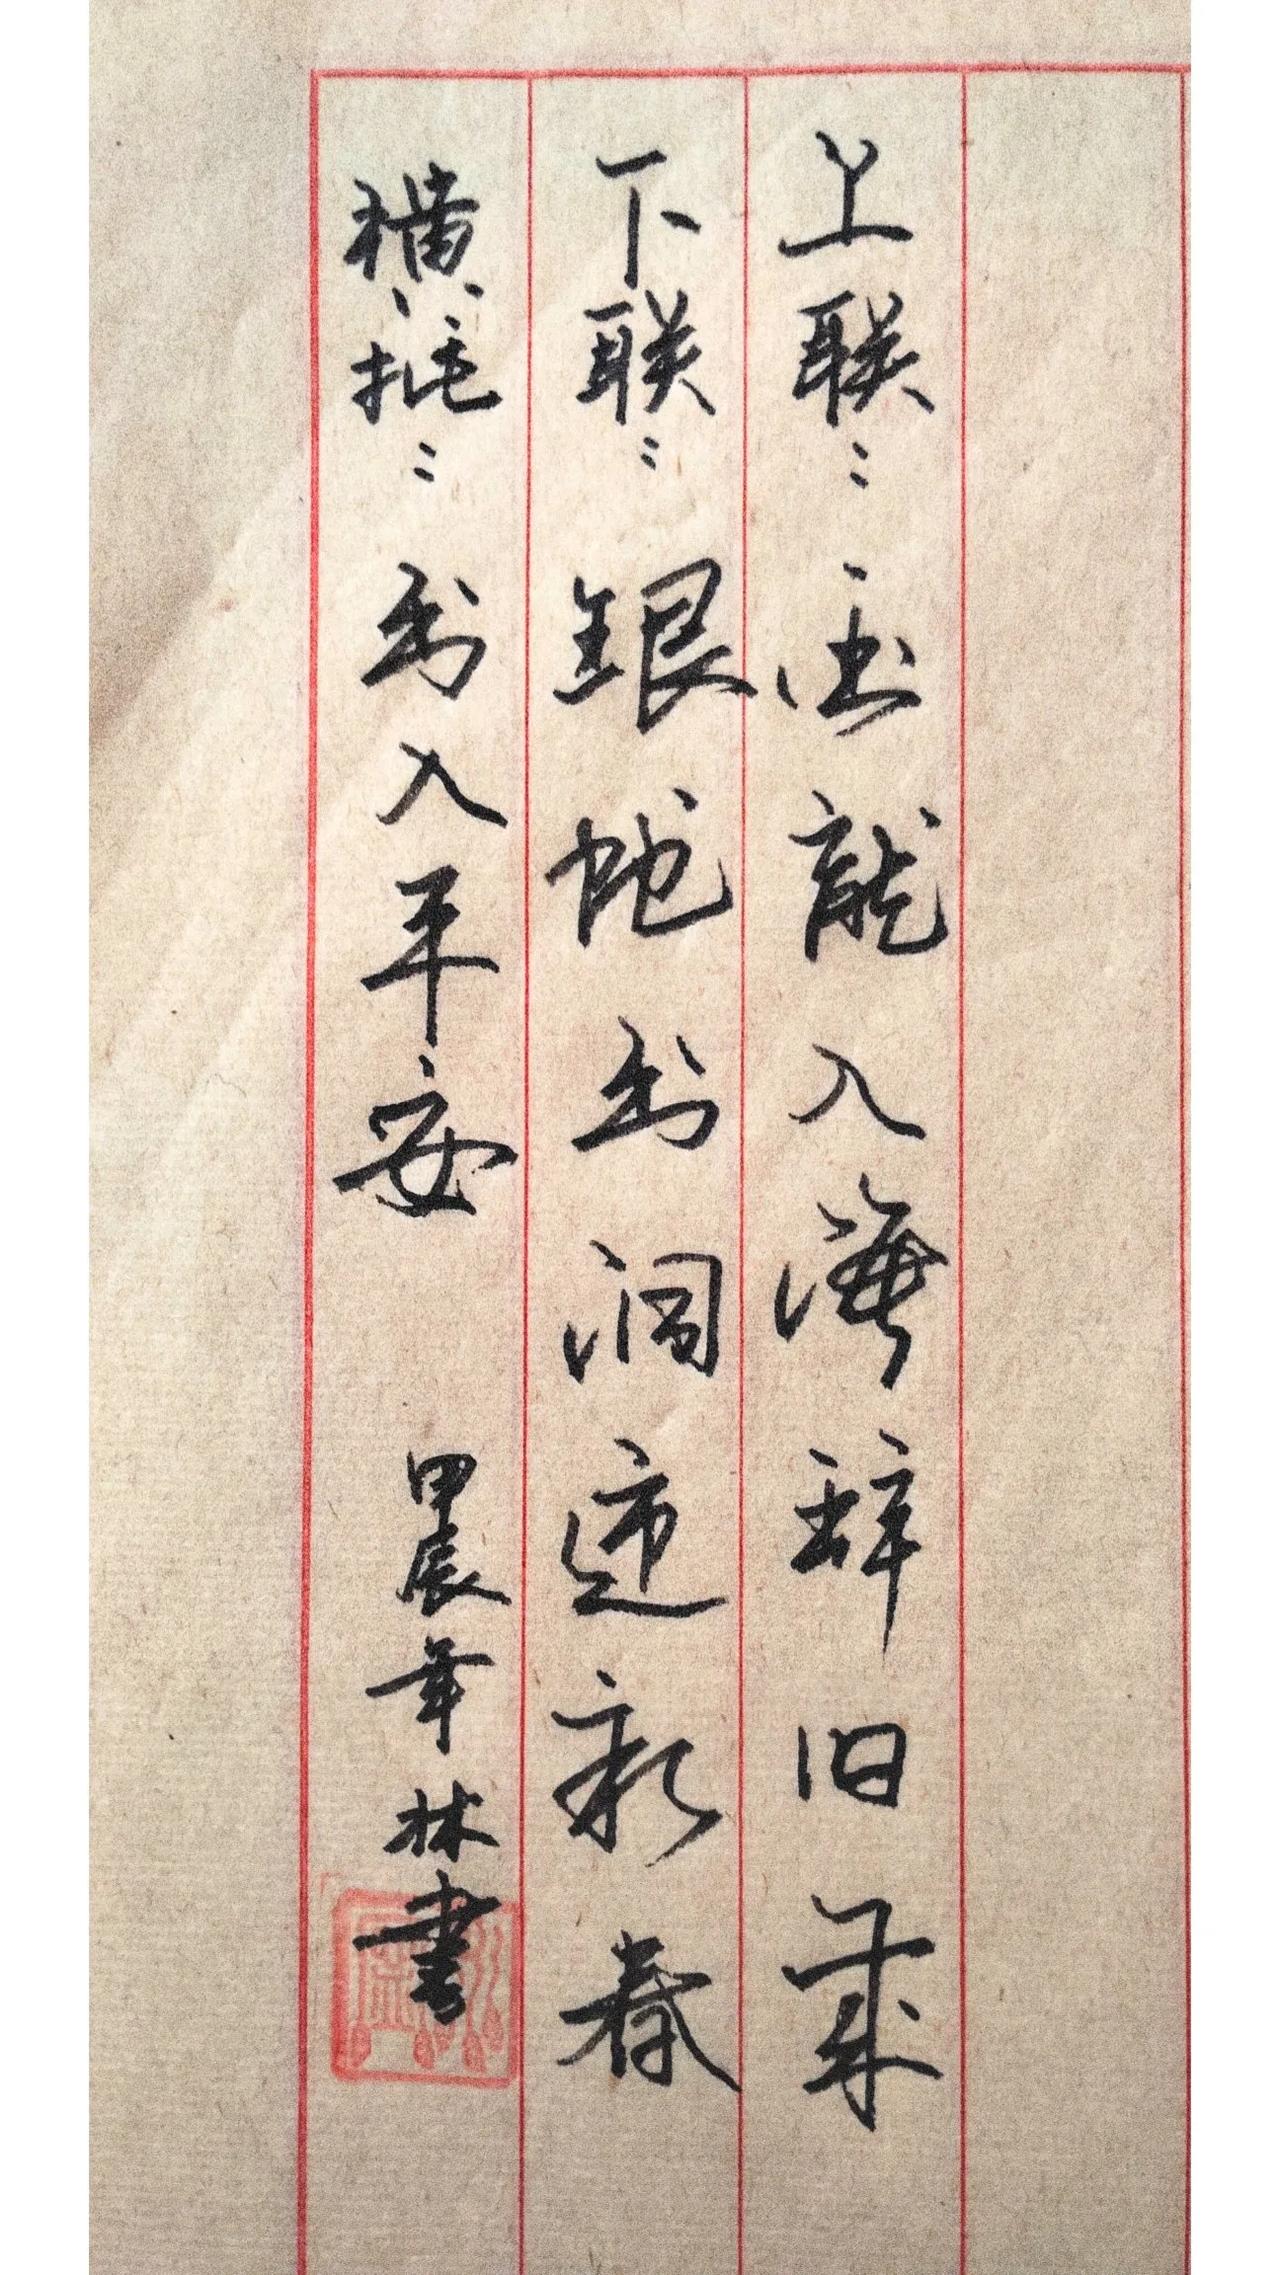 上联：金龍入海辞旧歲
下联：銀蛇出洞迎新春
横批：出入平安 甲辰年林書